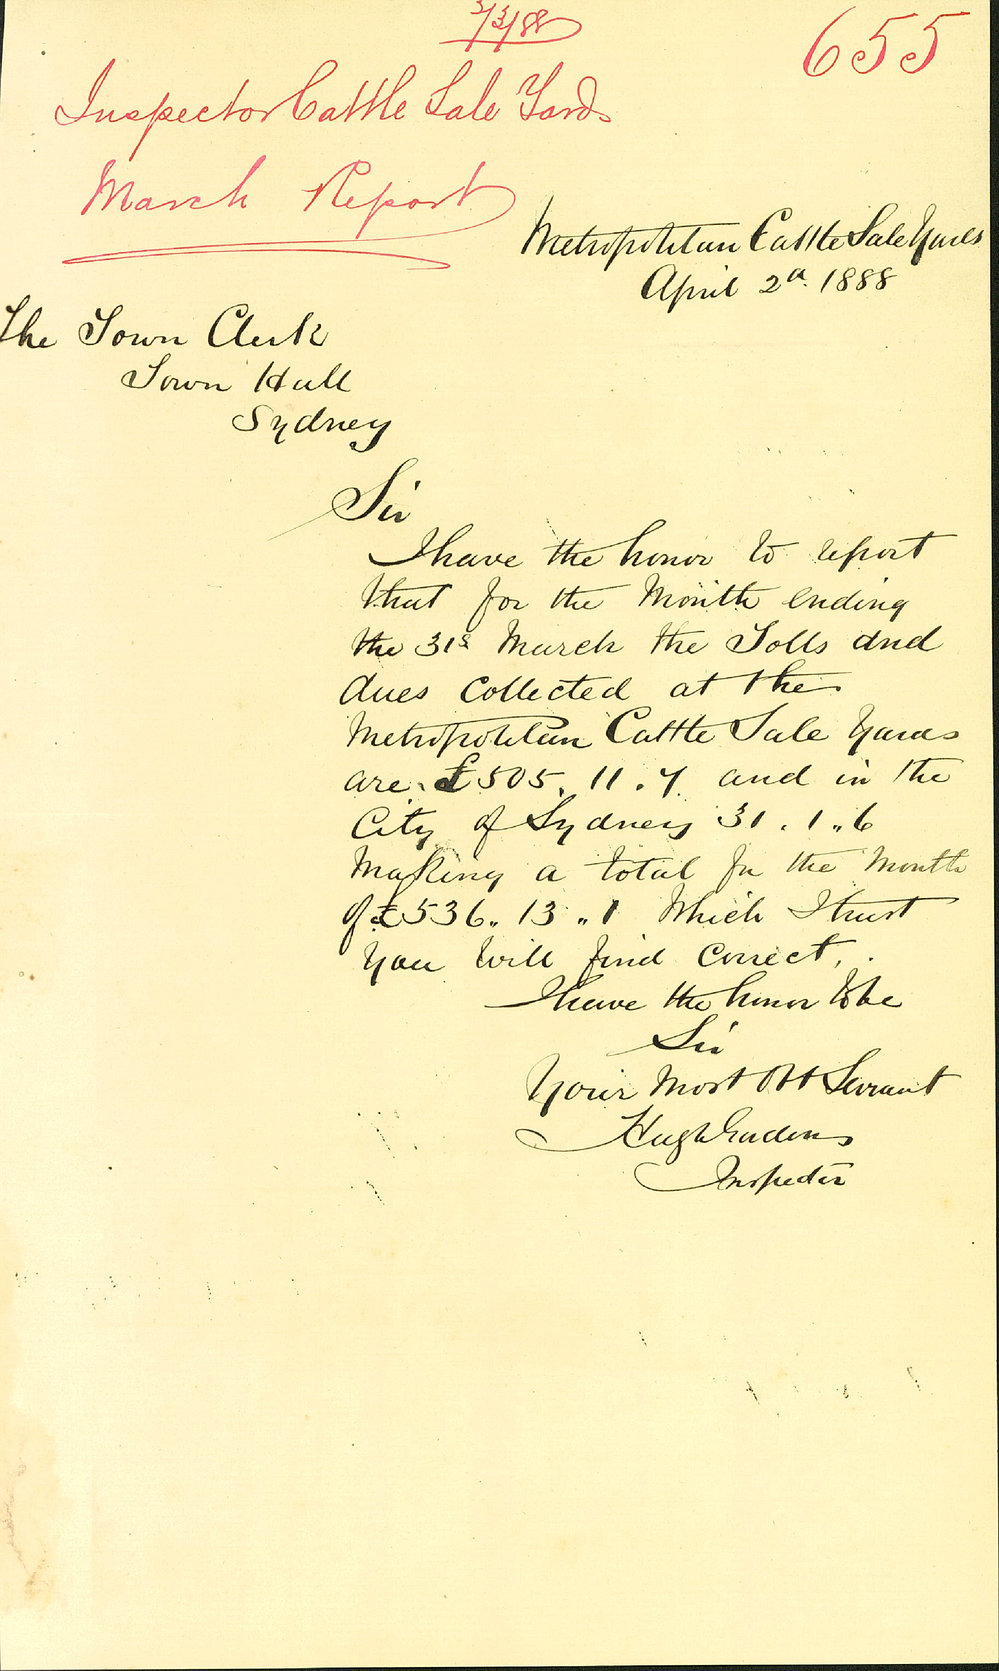 3/3/88
655
Inspector Cattle Sale Yards
March Report
Metropolitan Cattle Sale Yards
April 2d. 1888
The Town Clerk
Town Hall
Sydney
Sir
I have the honor to report
that for the Month ending
the 31s March the Tolls and
dues Collected at the
Metropolitan Cattle Sale Yards
are £505. 11. 7 and in the
City of Sydney 31. 1.. 6
Making a total for the Month
of £536.. 13.. 1 Which I trust
you will find Correct.
I have the honor to be
Sir
Your Most Obt Servant
Hugh
Inspector